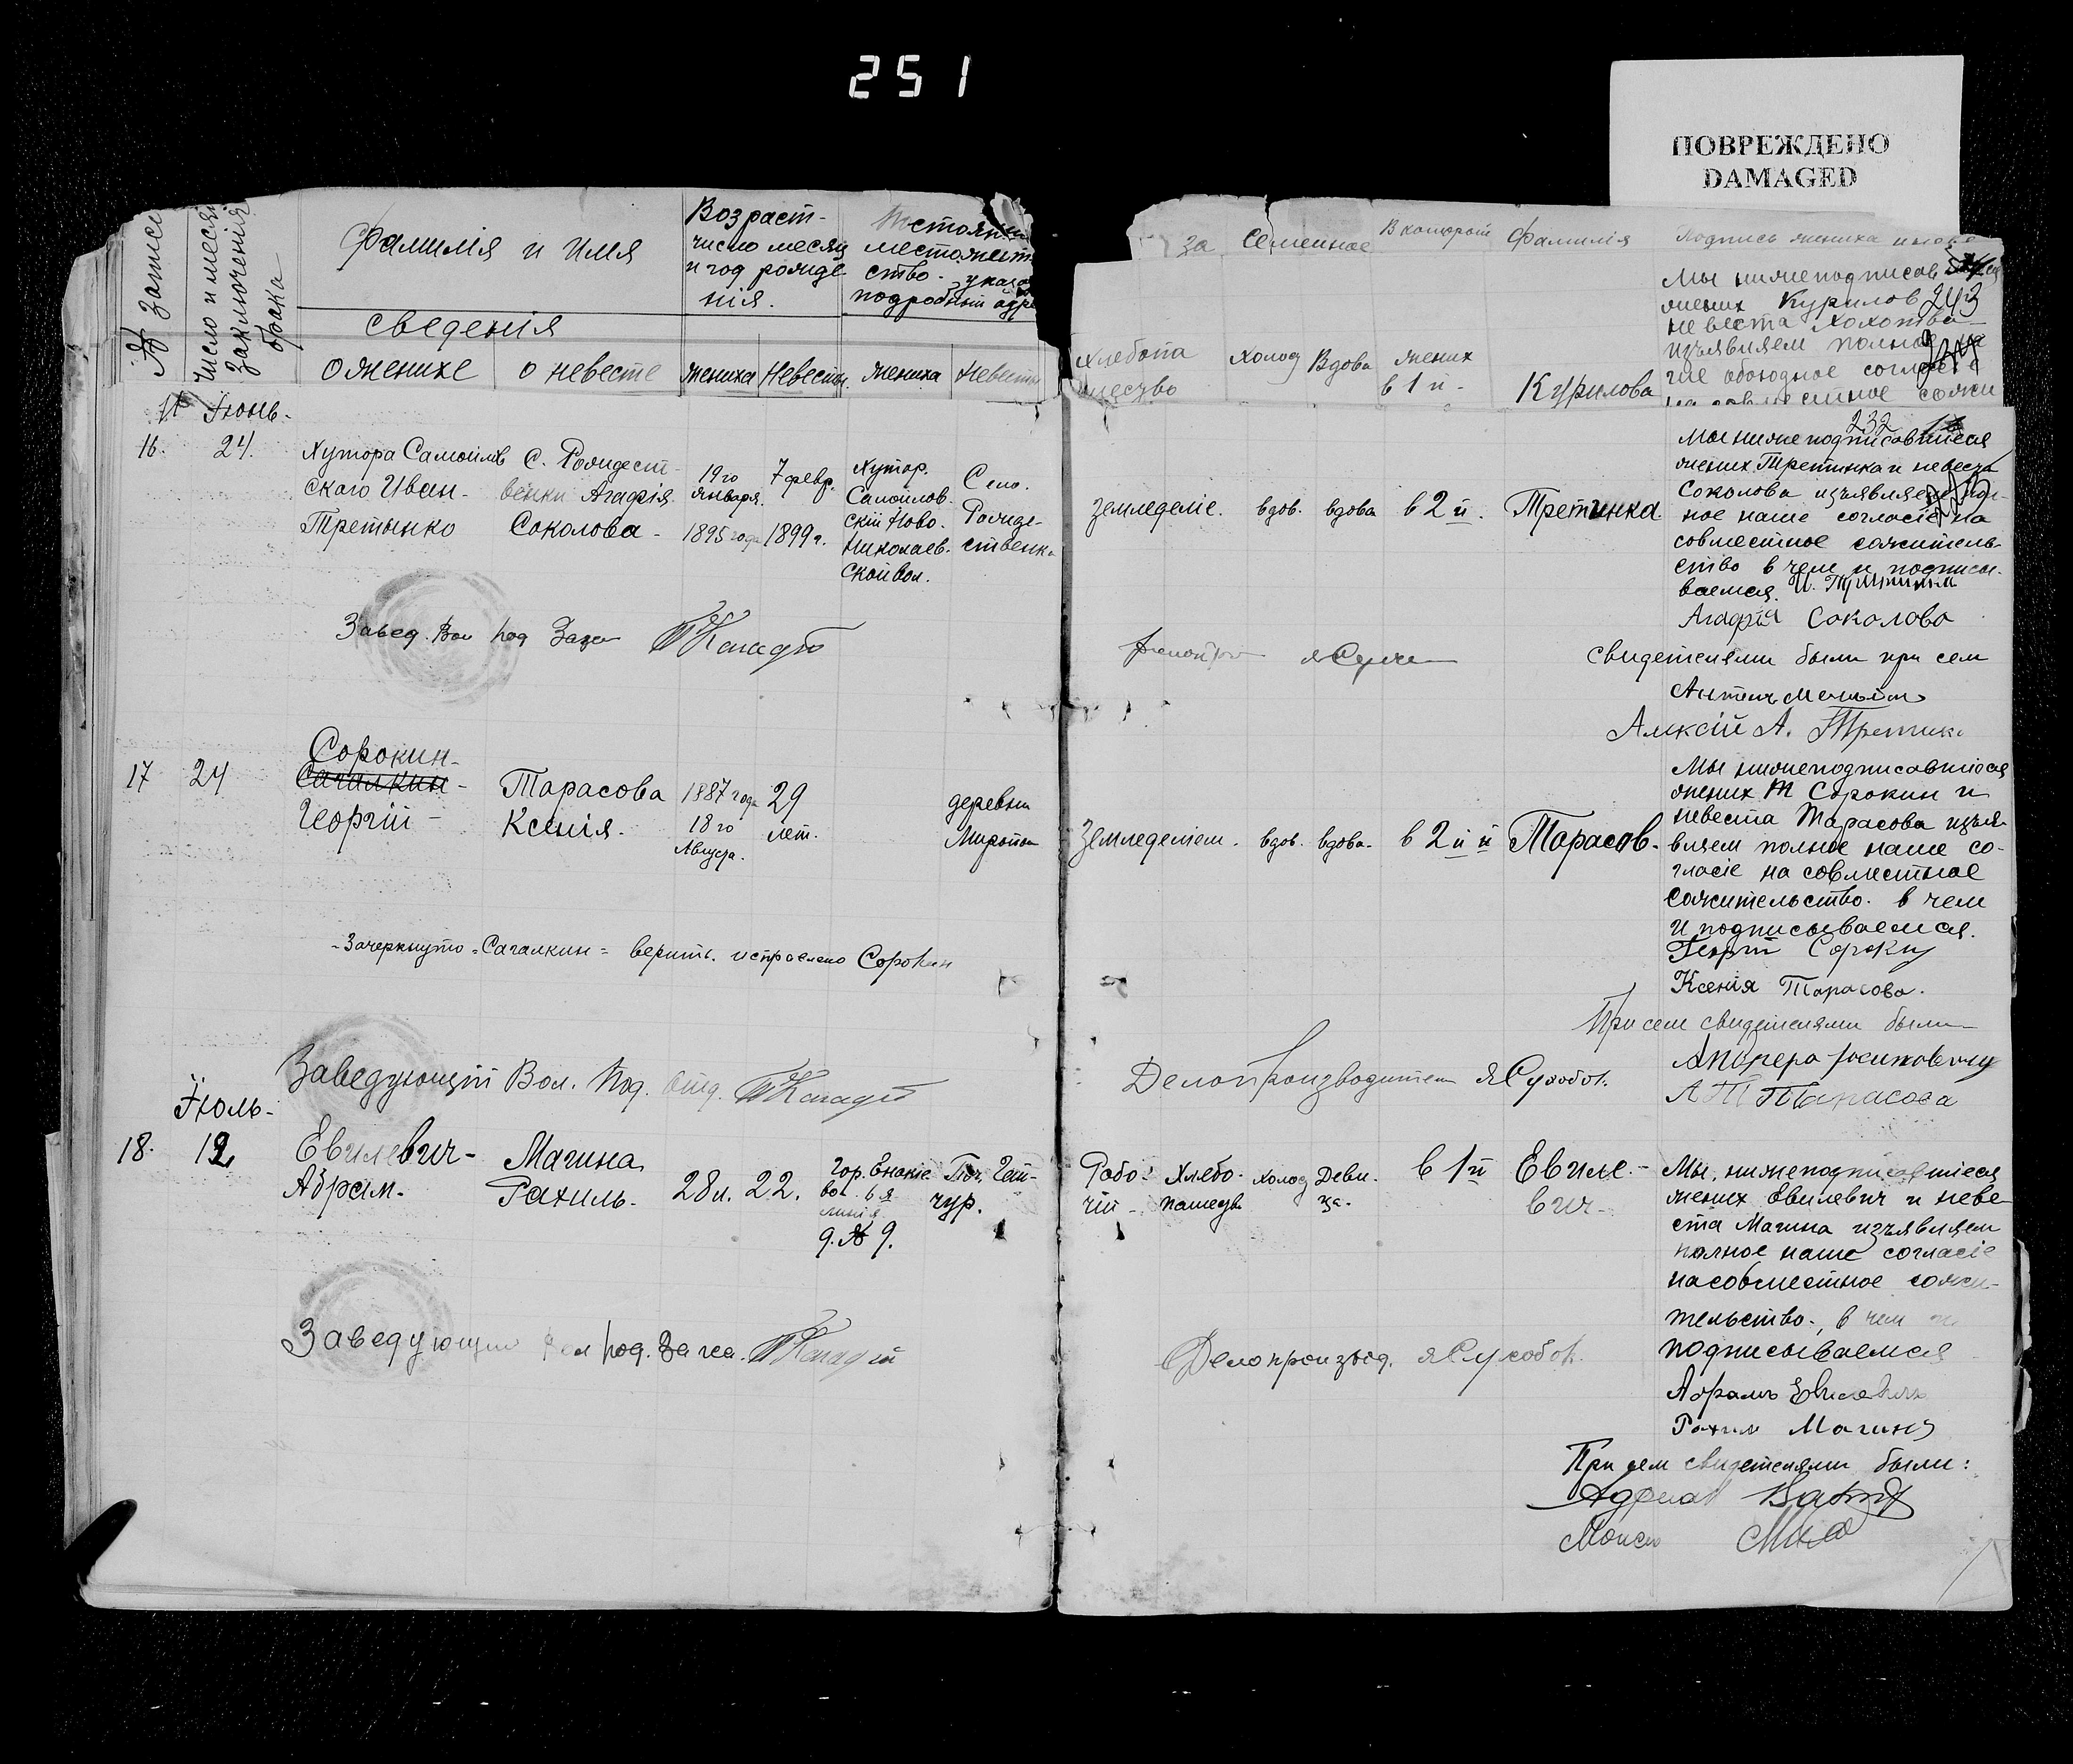 251
ПОВРЕЖДЕНО
DAMAGED
№ записи
Число и месяц
Заключенія
брака
Фамилія и имя
Возраст-
число месяц
и год рожде
нія.
местожит
ство - указ
подробный адре
сведенія
о женихе
о невесте
жениха
Невесты.
жениха
Невесты
за
Семейное
В которой
Фамилія
Подпись жениха и неве
Хлебопа
шество
Холод
Вдова
жених
в 1 й -
Курилова
Мы нижеподписав
жених Курилов 243
невеста Холотва
изъявляем полное на
ше обоюдное соглас
на совместное сожи
Іюнь.
16.
24.
Хутора Самойлов
ского Иван -
Третьянко
С. Рождест-
венки Агафія
Соколова -
19го
января
1895 года
7 февр.
1899 г.
Хутор.
Самойлов.
скій Ново.
Николаев.
ской вол.
Село.
Рожде-
ственка
земледеліе.
вдов.
вдова
в 2 й.
Третинка
232
Мы нижеподписавшіеся
жених Третинка и невеста
Соколова изъявляем пол-
ное наше согласіе на
совместное сожитель-
ство в чем и подписы-
ваемся.
Агафія Соколова
Завед. Вол под Загс
свидетелями были при сем
Алексій А. Третик
17
24
Сорокин-
Сагалкин -
Георгій -
Тарасова
Ксенія.
1887 года
18 го
Августа.
29
лет.
деревни
Земледелием.
вдов.
вдова.
в 2 й й
Тарасов.
Мы нижеподписавшіеся
жених Т Сорокин и
невеста Тарасова изъя-
вляем полное наше со-
гласіе на совместное
сожительство. в чем
и подписываемся.
Георгій Сорокин
Ксенія Тарасова.
- Зачеркнуто "Сагалкин" верить. исправлено Сорокин
При сем свидетелями были
Заведующій Вол. Под. отд.
Делопроизводител ЯСухобот.
А Т Тарасова
Іюль -
18.
12
Евилевич -
Абрам.
Магина
Рахиль.
28 л.
22.
Гор. Енакіе
во. 6 я
линія
д. № 9.
Пос. Гей-
чур.
Рабо-
чій -
Хлебо-
пашеств
холод
Деви-
ца.
в 1й
Евиле -
вич -
Мы, нижеподписавшіеся
жених Евилевич и неве-
ста Магина изъявляем
полное наше согласіе
на совместное сожи-
тельство., в чем и
подписываемся
Абрамъ Евилевичъ
Рахил Магина
Заведующій Вол под. Загса.
Делопроизвод. ЯСухобот.
При сем свидетелями были: